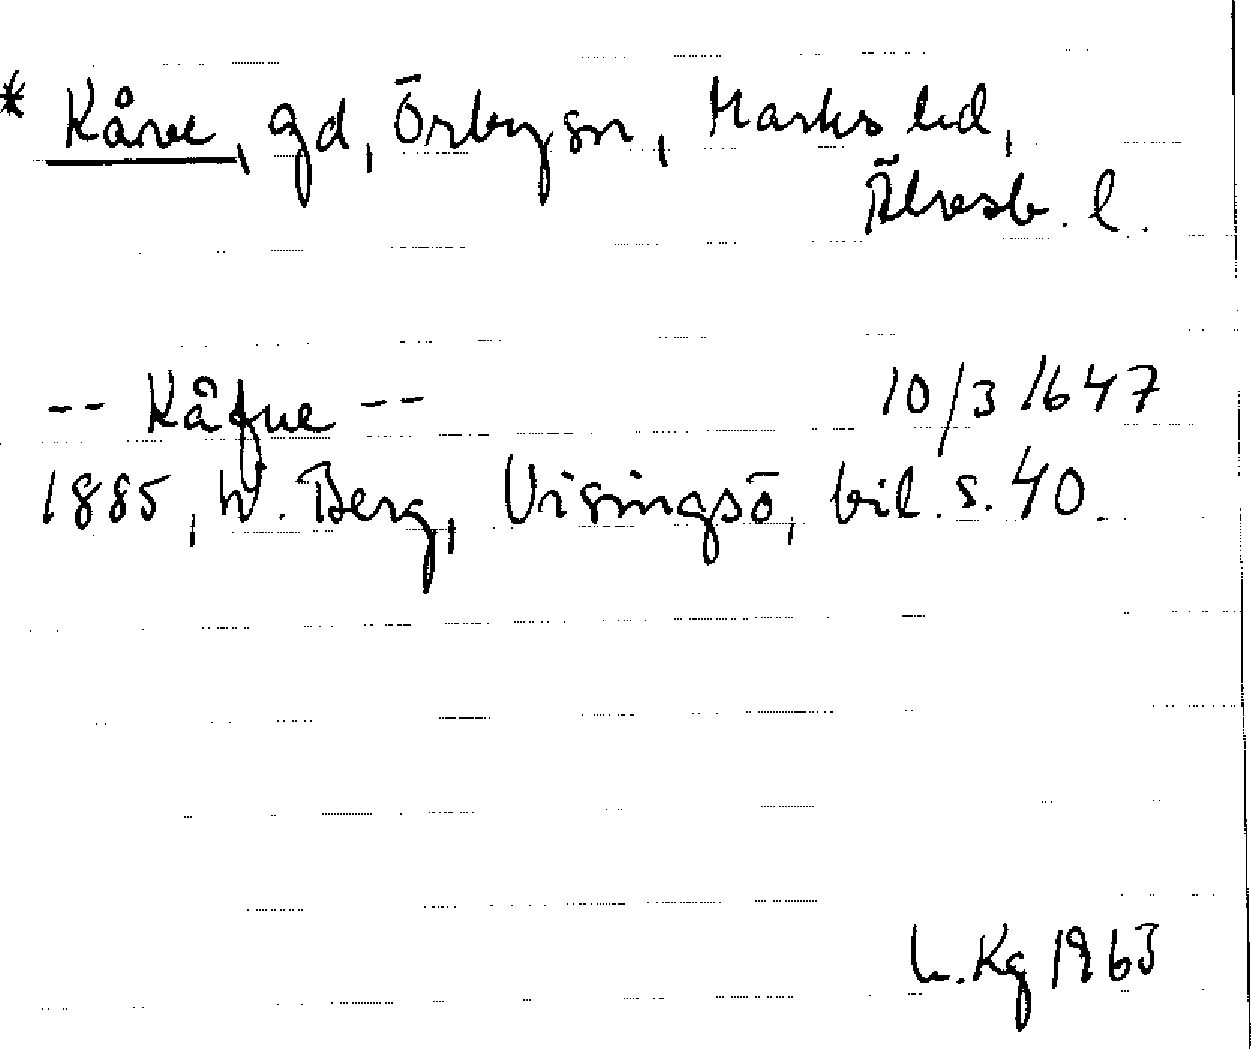 * Kåve, gd, Örby sn, Marks hd,
Älvsb. l.
-- Kåfue -- 10/3 1647
1885, W. Berg, Visingsö, bil. s. 40.
L. Kg 1963